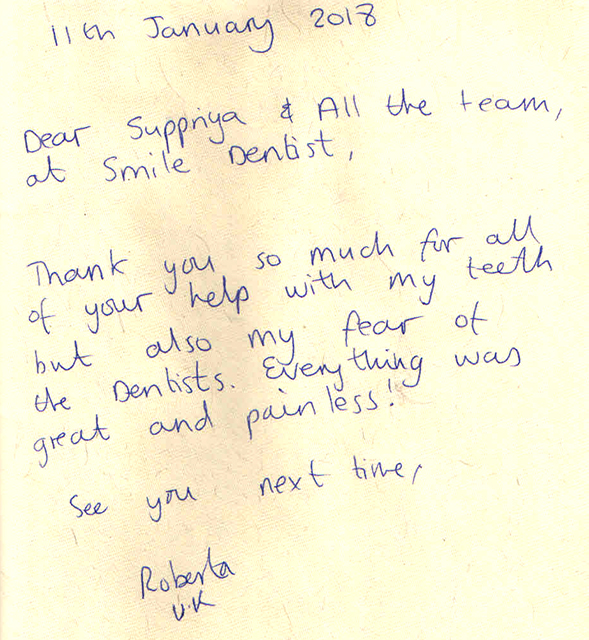 11th January 2018
Dear Suppriya & All the team,
at Smile Dentist,
Thank you so much for all
of your help with my teeth
but also my fear of
the Dentists. Everything was
great and painless!
See you next time,
Roberta
U.K